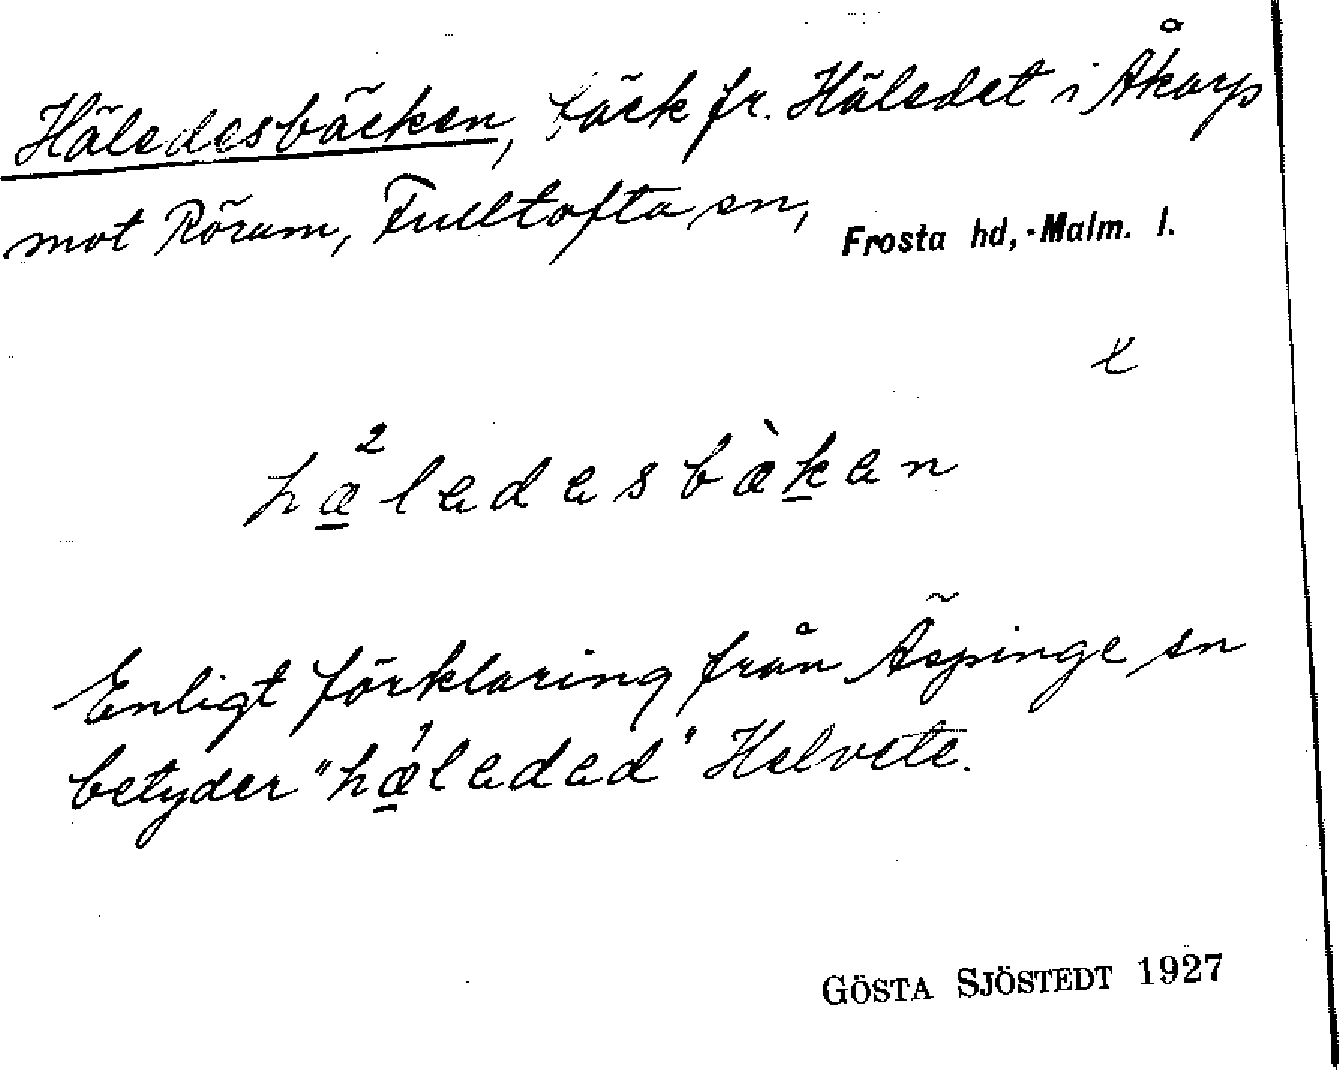 Häledesbäcken, bäck fr. Häledet i Åkarp
mot Rörum, Fulltofta sn, Frosta hd, Malm. l.
hæ²ledesbæ̀ken
Enligt förklaring från Äspinge sn
betyder "hæ¹leded" Helvete.
GÖSTA SJÖSTEDT 1927